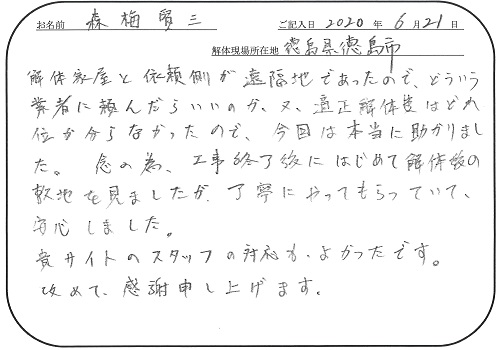 お名前 森梅賢三 ご記入日 2020 年 6 月 21 日
解体現場所在地 徳島県徳島市
解体家屋と依頼側が遠隔地であったので、どういう
業者に頼んだらいいのか、又、適正解体費はどれ
位か分らなかったので、今回は本当に助かりまし
た。 念の為、工事終了後にはじめて解体後の
敷地を見ましたが、丁寧にやってもらっていて、
安心しました。
貴サイトのスタッフの対応も、よかったです。
改めて、感謝申し上げます。